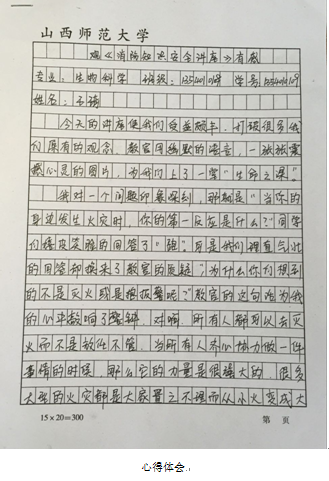 山西师范大学
观《消防知识安全讲座》有感
专业:生物科学 班级: 学号:
姓名:
今天的讲座使我们受益颇丰,打破很多我
们原有的观念。教官用幽默的语言,一张张震
撼心灵的图片,为我们上了一堂“生命之课”。
我对一个问题印象深刻,那就是“当你的
身边发生火灾时,你的第一反应是什么?”同学
们嘻皮笑脸的回答了“跑”,可是我们理直气壮
的回答却换来了教官的质疑“为什么你们想到
的不是灭火或是报警呢?”教官的这句话为我
的心中敲响了警钟。对啊,所有人都可以去灭
火而不是放任不管,当所有人齐心协力做一件
事情的时候,那么它的力量是很强大的,很多
大型的火灾都是大家置之不理而从小火变成大
15×20=300 第 页
心得体会.,